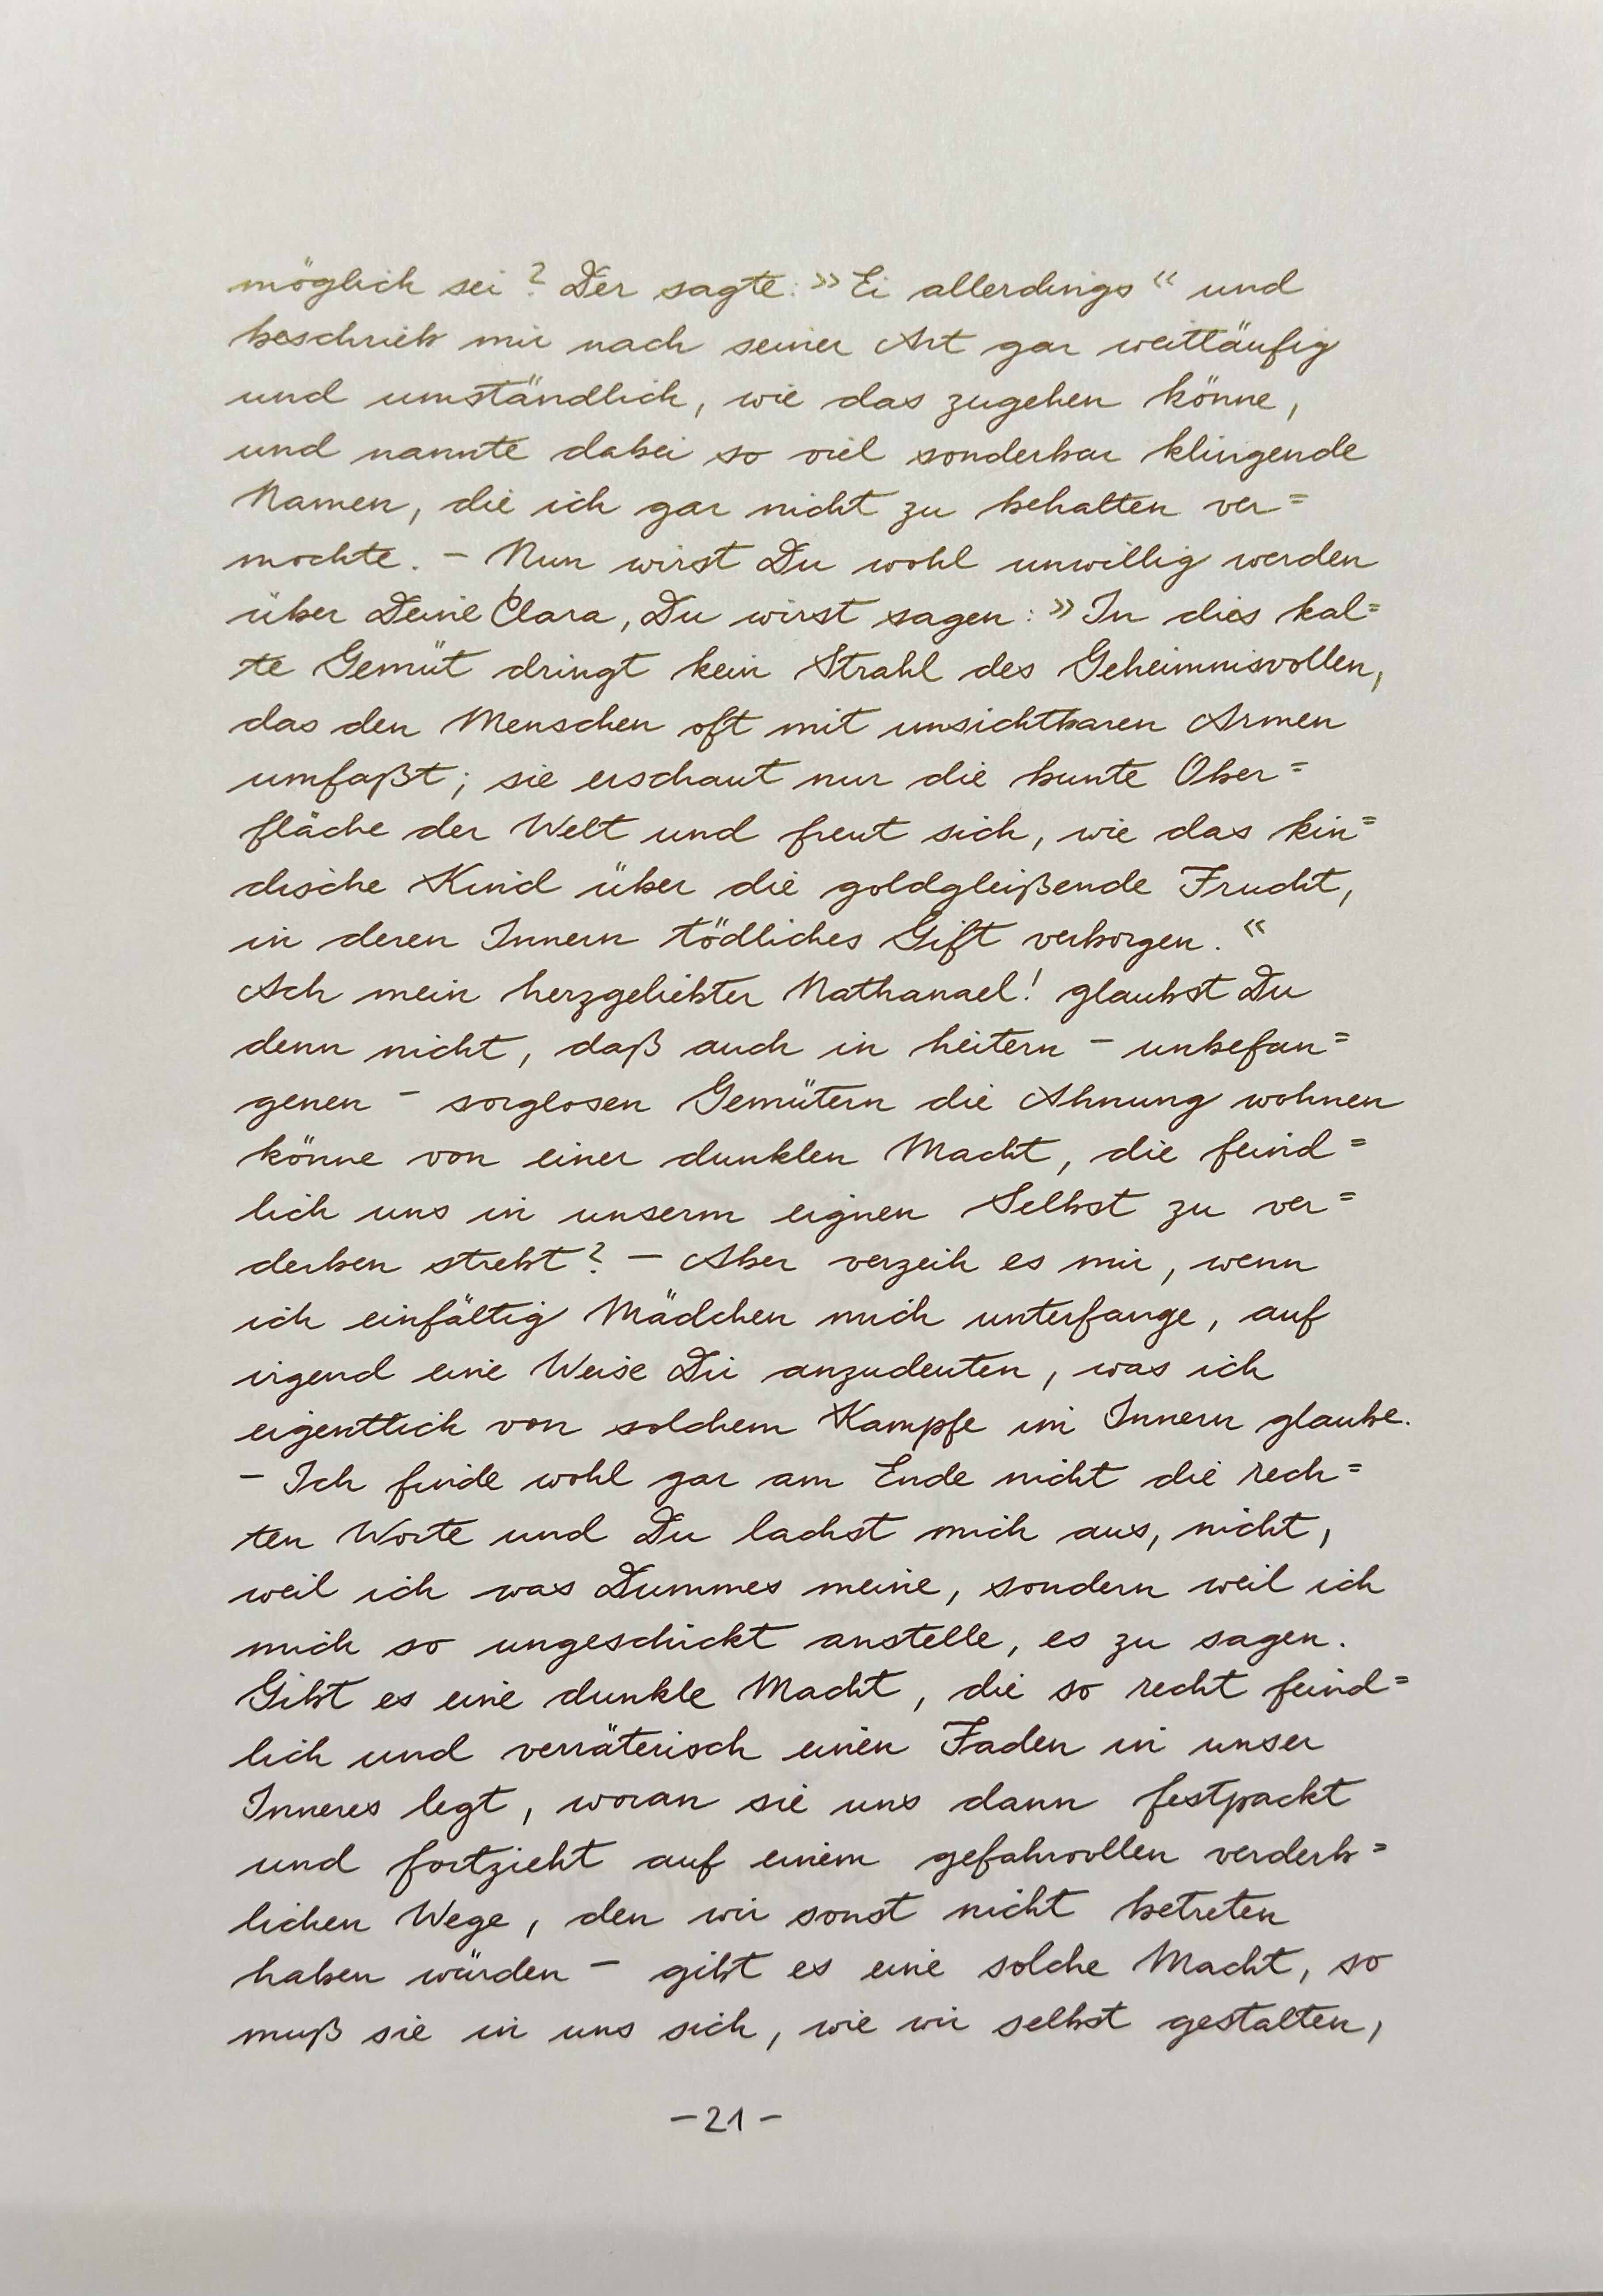 möglich sei? Der sagte: »Ei allerdings« und
beschrieb mir nach seiner Art gar weitläufig
und umständlich, wie das zugehen könne,
und nannte dabei so viel sonderbar klingende
Namen, die ich gar nicht zu behalten ver=
mochte. – Nun wirst Du wohl unwillig werden
über Deine Clara, Du wirst sagen: »In dies kal=
te Gemüt dringt kein Strahl des Geheimnisvollen,
das den Menschen oft mit unsichtbaren Armen
umfaßt; sie erschaut nur die bunte Ober=
fläche der Welt und freut sich, wie das kin=
dische Kind über die goldgleißende Frucht,
in deren Innern tödliches Gift verborgen.«
Ach mein herzgeliebter Nathanael! glaubst Du
denn nicht, daß auch in heitern – unbefan=
genen – sorglosen Gemütern die Ahnung wohnen
könne von einer dunklen Macht, die feind=
lich uns in unserm eignen Selbst zu ver=
derben strebt? – Aber verzeih es mir, wenn
ich einfältig Mädchen mich unterfange, auf
irgend eine Weise Dir anzudeuten, was ich
eigentlich von solchem Kampfe im Innern glaube.
– Ich finde wohl gar am Ende nicht die rech=
ten Worte und Du lachst mich aus, nicht,
weil ich was Dummes meine, sondern weil ich
mich so ungeschickt anstelle, es zu sagen.
Gibt es eine dunkle Macht, die so recht feind=
lich und verräterisch einen Faden in unser
Inneres legt, woran sie uns dann festpackt
und fortzieht auf einem gefahrvollen verderb=
lichen Wege, den wir sonst nicht betreten
haben würden – gibt es eine solche Macht, so
muß sie in uns sich, wie wir selbst gestalten,
–21–